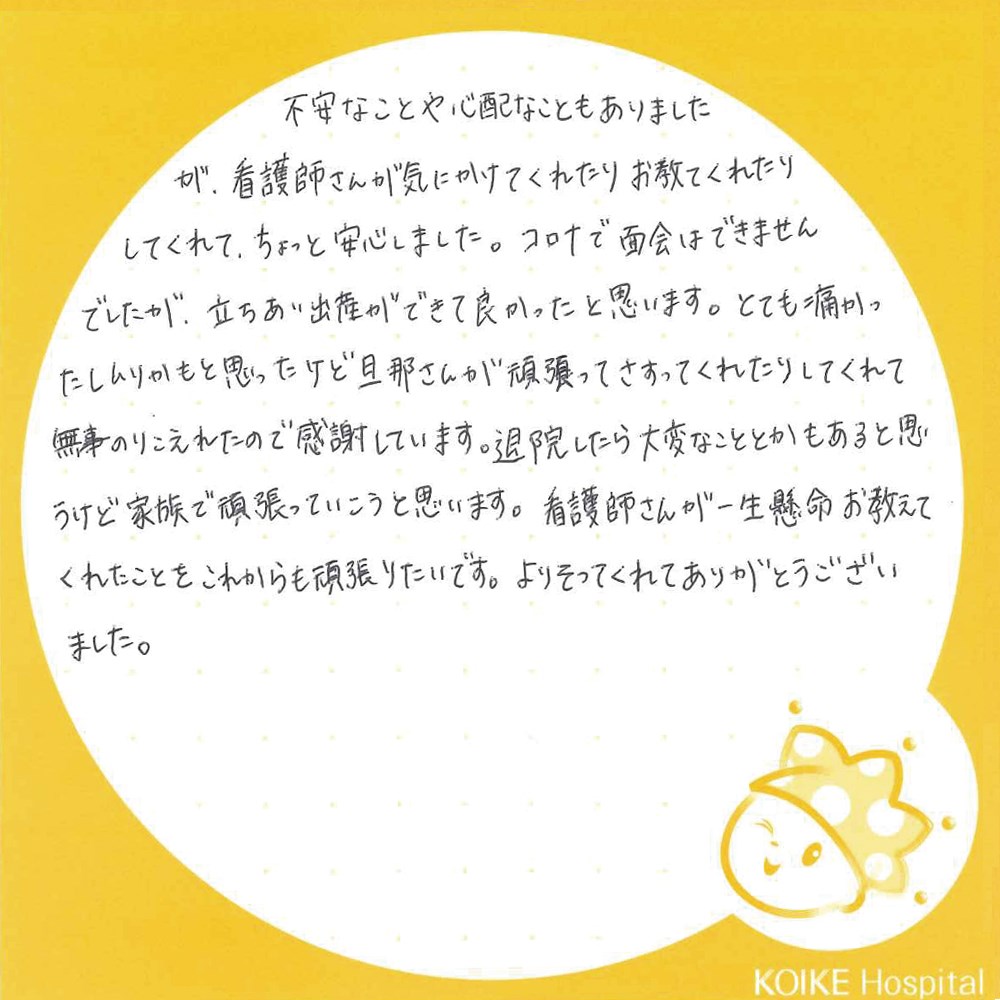 不安なことや心配なこともありました
が、看護師さんが気にかけてくれたりお教てくれたり
してくれて、ちょっと安心しました。コロナで面会はできません
でしたが、立ちあい出産ができて良かったと思います。とても痛かっ
たしムリかもと思ったけど旦那さんが頑張ってさすってくれたりしてくれて
無事のりこえれたので感謝しています。退院したら大変なこととかもあると思
うけど家族で頑張っていこうと思います。看護師さんが一生懸命お教えて
くれたことをこれからも頑張りたいです。よりそってくれてありがとうござい
ました。
KOIKE Hospital